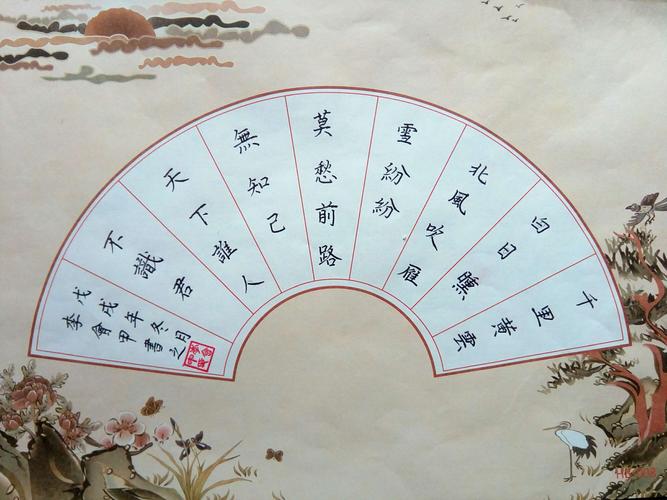 千里黃雲
白日曛
北風吹雁
雪紛紛
莫愁前路
無知己
天下誰人
不識君
戊戌年冬月
李會甲書之